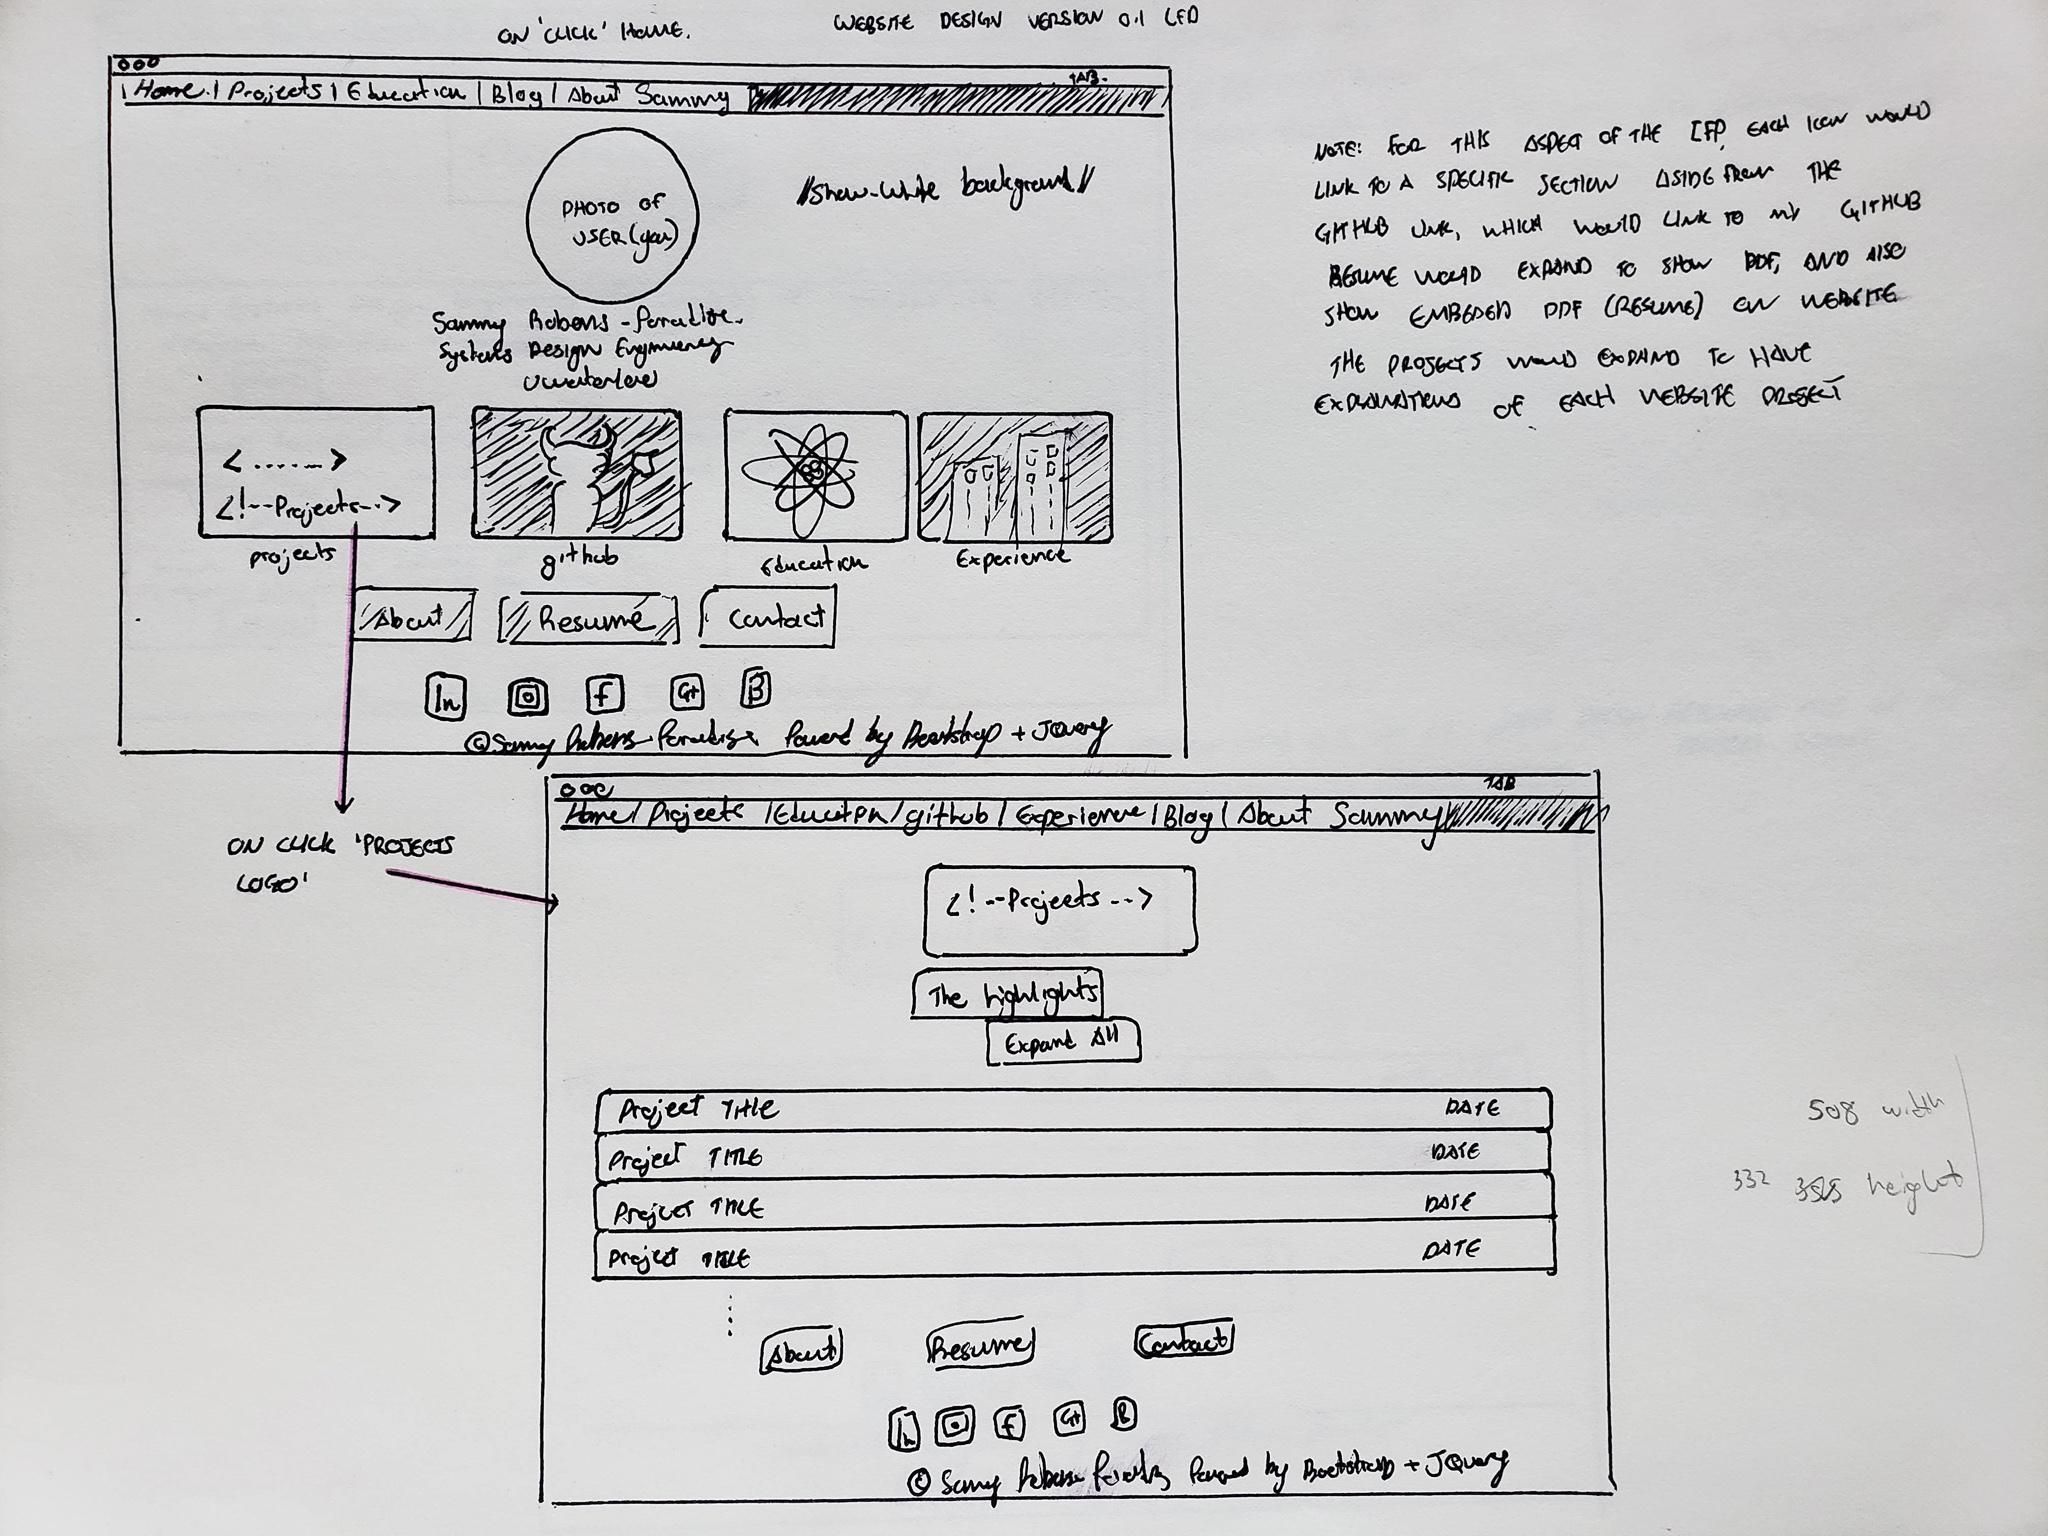 ON 'CLICK' HOME.
WEBSITE DESIGN VERSION 0.1 LFD
TAB.
| Home. | Projects | Education | Blog | About Sammy
PHOTO OF
USER (you)
//Show-White background//
Sammy Robens-Paradise.
Systems Design Engineering
UWaterloo
< ...... >
<!--Projects-->
projects
github
Education
Experience
About
Resumé
Contact
In
f
G+
B
© Sammy Robens-Paradise Powered by Bootstrap + JQuery
NOTE: FOR THIS ASPECT OF THE LFP, EACH ICON WOULD
LINK TO A SPECIFIC SECTION ASIDE FROM THE
GITHUB LINK, WHICH WOULD LINK TO MY GITHUB
RESUME WOULD EXPAND TO SHOW PDF, AND ALSO
SHOW EMBEDED PDF (RESUME) ON WEBSITE
THE PROJECTS WOULD EXPAND TO HAVE
EXPLANATIONS OF EACH WEBSITE PROJECT
ON CLICK 'PROJECTS
LOGO'
TAB
Home | Projects | Education / github | Experience | Blog | About Sammy
<!--Projects-->
The highlights
Expand All
Project TITLE DATE
Project TITLE DATE
Project TITLE DATE
Project TITLE DATE
About
Resume
Contact
In
f
G+
B
© Sammy Robens Paradise Powered by Bootstrap + JQuery
508 width
332 height